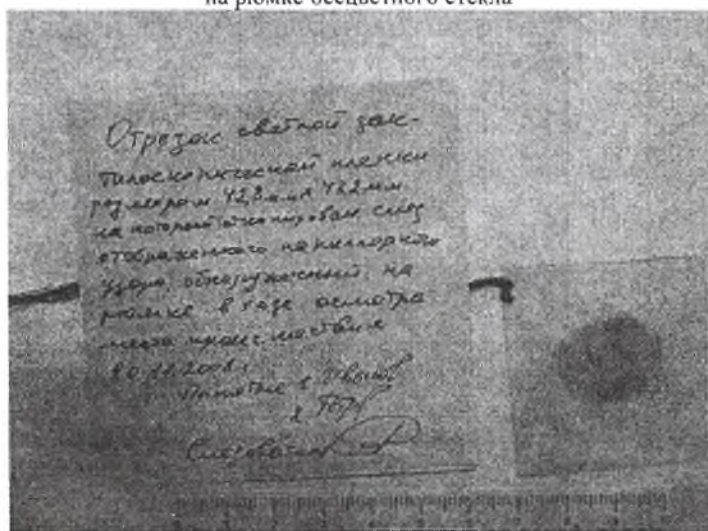 на рюмке бесцветного стекла
Отрезок светлой дак-
тилоскопической пленки
размером 42,8мм х 42,2 мм
на который откопирован след
отображенного папиллярного
узора, обнаруженный на
рюмке в ходе осмотра
места происшествия
20.11.2008г
Понятые 1
2
Следователь